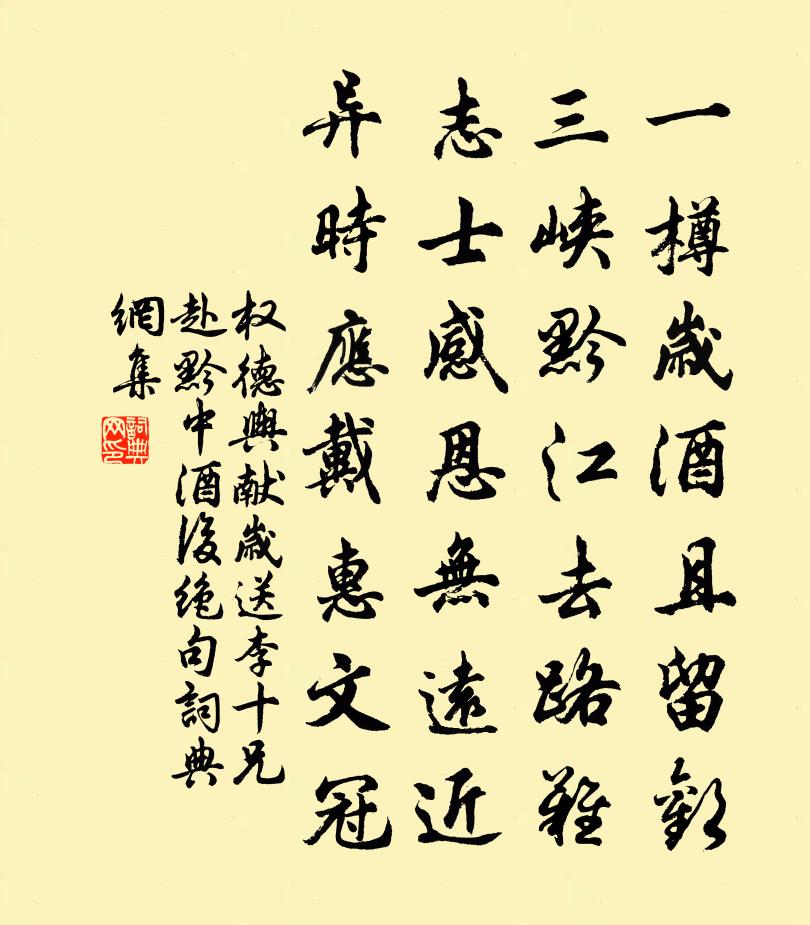 一樽歲酒且留歡
三峽黔江去路難
志士感恩無遠近
异時應戴惠文冠
权德輿献歲送李十兄
赴黔中酒後絶句詞典
網集
詞典
网印